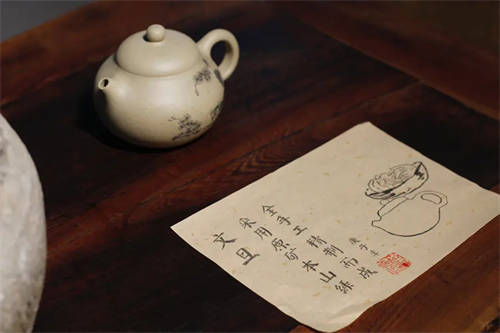 文旦
采用原矿本山绿
全手工精制而成
庚子